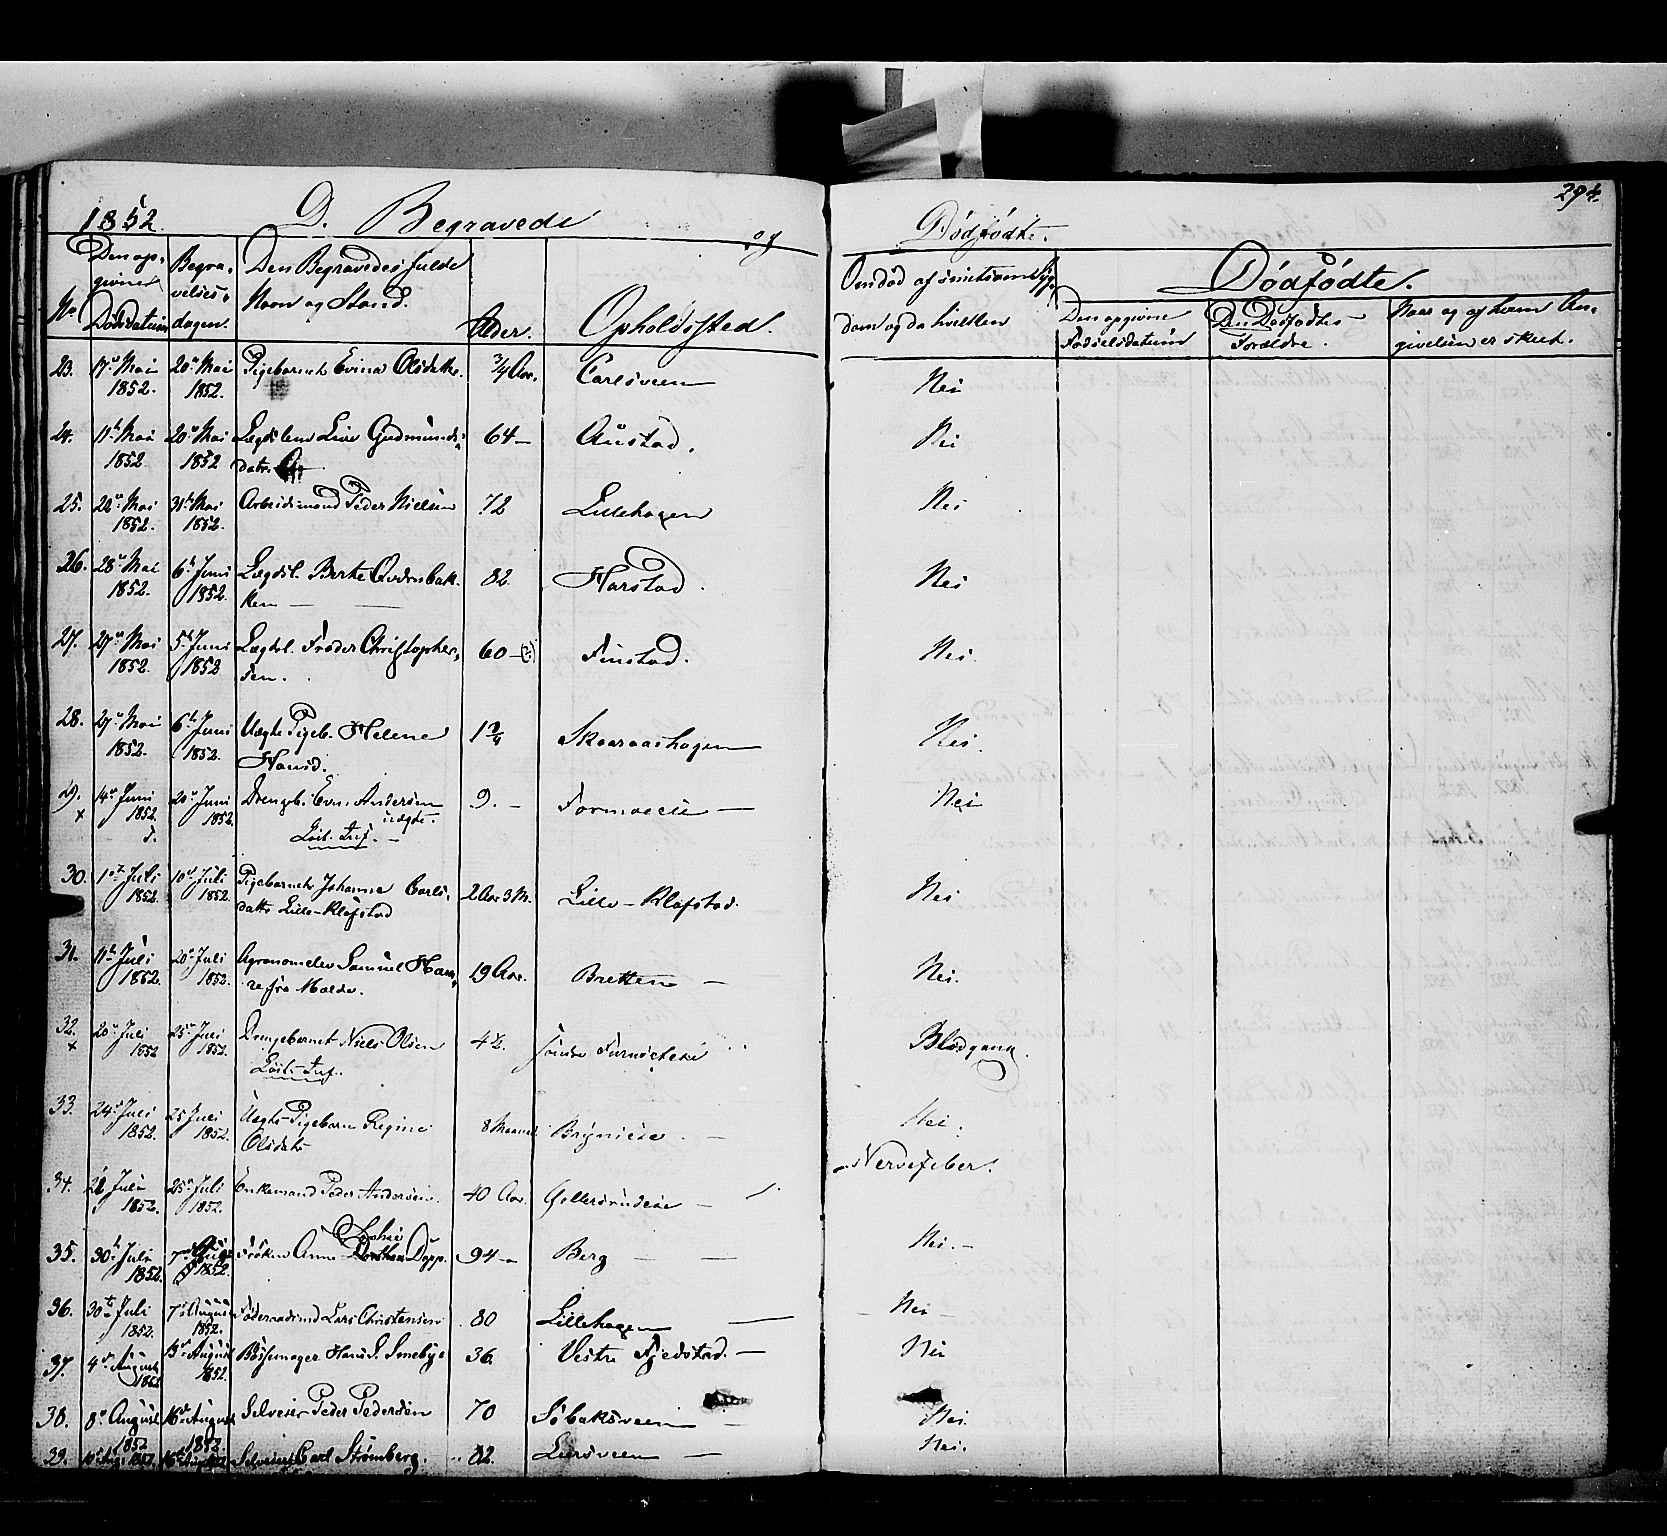 294.
1852. D. Begravede og Dødfødte.
No
Den opgivne Dødsdatum
Begravelsesdagen.
Den Begravedes fulde Navn og Stand.
Alder.
Opholdssted.
Om død af smitsom Sygdom og da hvilken
Dødfødte.
Den opgivne Fødselsdatum
Den Dødfødtes Forældre.
Naar og af hvem Angivelsen er skeet.
23. 17de Mai 1852. 20de Mai 1852. Pigebarnet Evina Olsdatter. 3/4 Aar. Carlsveen Nei
24. 11te Mai 1852. 20de Mai 1852 Lægdslem Live Gudmundsdatr. 64 — Austad. Nei
25. 22de Mai 1852. 31te Mai 1852. Arbeidsmand Peder Nielsen 72 Lillehagen Nei
26. 28de Mai 1852. 6te Juni 1852. Lægdsl. Berte Qvernbakken — 82 Harstad. Nei
27. 27de Mai 1852. 5te Juni 1852 Lægdsl. Frøder Christophersen. 60 — (?) Finstad. Nei.
28. 27de Mai 1852. 6te Juni 1852. Uægte Pigeb. Helene Hansd. 1 3/4 Skaaraashagen Nei.
29. x 14de Juni 1852. 20de Juni 1852. Drengeb. Even Andersen uægte. 9. — Formoeie — Nei
30. 1ste Juli 1852. 10de Juli 1852. Pigebarnet Johanne Carlsdatter Lille-Kløfstad 2 Aar 3 M. Lille-Kløfstad. Nei
31. 11te Juli 1852. 20de Juli 1852. Agronomelev Samuel fra Molde. 19 Aar. Bretten — Nei.
32. x 20de Juli 1852 25de Juli 1852. Drengebarnet Niels Olsen 4 1/2. Søndre Blodgang.
33. 24de Juli 1852. 25 Juli 1852. Uægte Pigebarn Regine Olsdatr 8 Maaned — Nei.
34. 21 Juli 1852. 25de Juli 1852. Enkemand Peder Andersen. 40 Aar. — Nervefeber.
35. 30te Juli 1852. 7de Aug. 1852. Frøken Anne Sophie Dopp. 94 — Berg — — Nei. —
36. 30te Juli 1852. 7de August 1852. Føderaadsmd Lars Christensen 80 Lillehagen — — Nei —
37. 4de August 15de August 1852. Bøssemager Hans S. Smebye 36. Vestre Fjedstad. — Nei
38. 8de August 1852 16de August 1852. Selveier Peder Pedersen 70 Sobaksveen — Nei.
39. 1852 Selveier Carl Strømberg. 82. Lursveen — Nei.